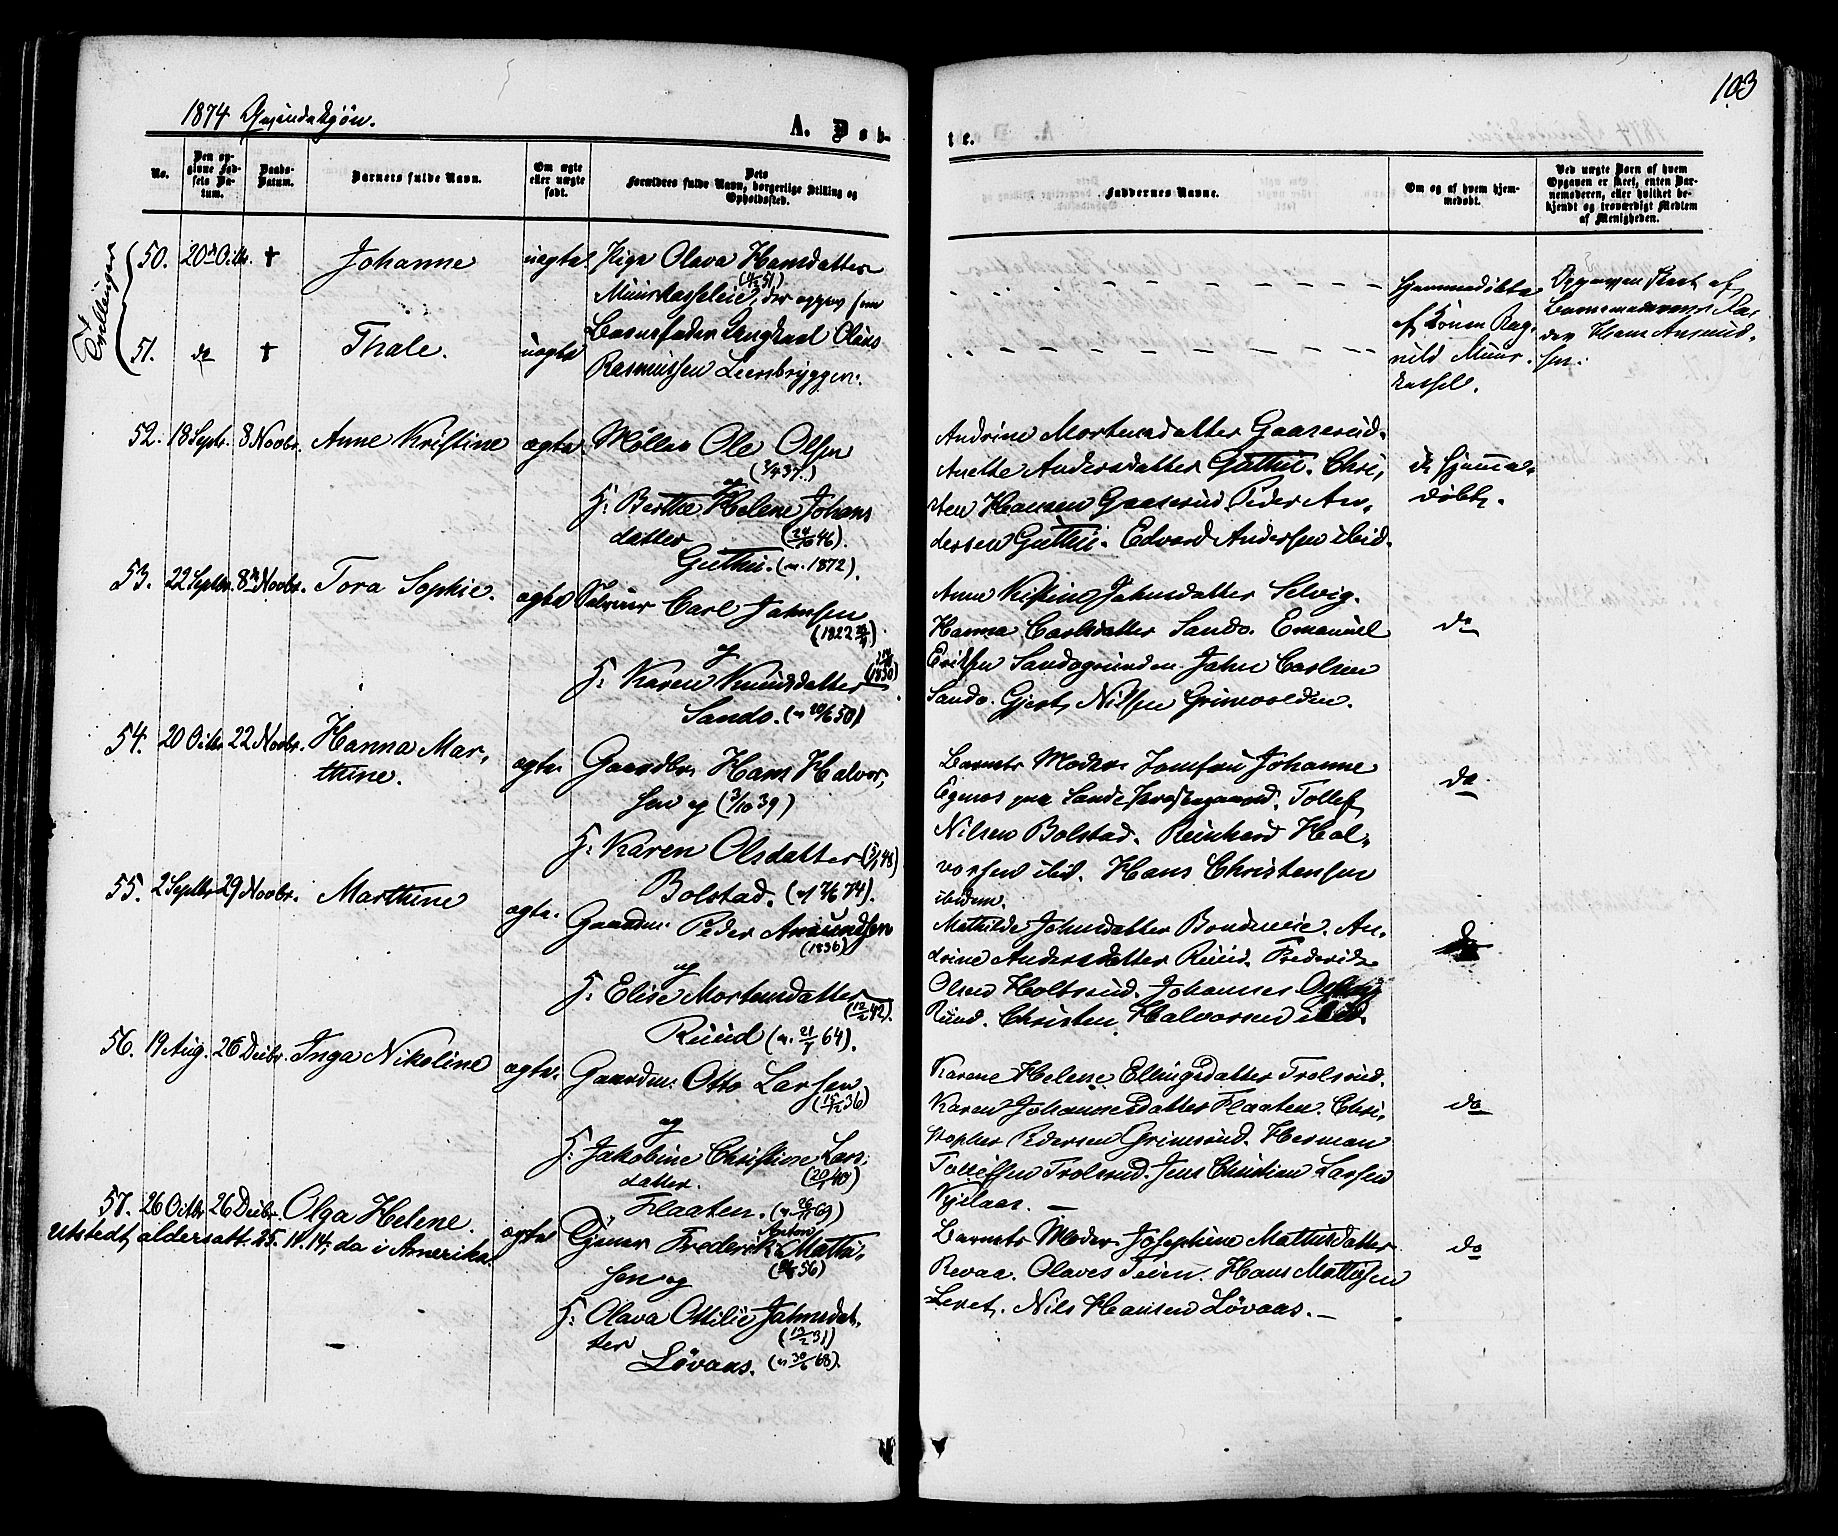 103
1874 Qvindekjøn.
A. Døb-
te.
No.
Den op-
givne Fød-
sels Da-
tum.
Daabs-
Datum.
Barnets fulde Navn.
Om ægte
eller uægte
født.
Dets
Forældres fulde Navn, borgerlige Stilling og
Opholdssted.
Faddernes Navne.
Om og af hvem hjem-
medøbt.
Ved uægte Børn af hvem
Opgaven er skeet, enten Bar-
nemoderen, eller hvilket be-
kjendt og troværdigt Medlem
af Menigheden.
Tvillinger
50. 20de Octbr. † Johanne uægte. Pige Olava Hansdatter
der opgav som
51. do † Thale. uægte Barnefader Ungkarl Olaus
Rasmussen Leersbryggen.
Hjemmedøbt
af Konen Rag-
nild Muur-
kassel.
Opgaven skeet af
Barnemoderens Fa-
der Hans
52. 18 Septbr. 8 Novbr. Anne Kristine ægte Møller Ole Olsen
og
H: Berthe Helene Johans
datter (24/10 46).
Guthu. (v. 1872).
Andrine Mortensdatter Gaaserud.
Anette Andersdatter Guthu. Chri-
sten Hansen Gaaserud. Peder An-
dersen Guthu. Edvard Andersen ibid.
Hjemme-
døbt.
53. 22 Septbr. 8de Novbr. Tora Sophie. ægte Carl Johnsen
(1822)
og
H: Karen Knudsdatter (1830)
Sando.
Anne Kistine Johnsdatter Selvig.
Hanna Carlsdatter Sando. Emanuel
Eriksen Sandogrunden. John Carlsen
Sando. Gjert Nilsen Grimsolden.
do
54. 20 Octbr. 22 Novbr. Hanna Mar-
thine. ægte. Gaardbr. Hans Halvor-
sen og (3/10 39)
H: Karen Olsdatter
Bolstad.
Barnets Moder. Jomfru Johanne
Egenes paa Sande Præstegaard. Tollef
Nilsen Bolstad. Reinhard Hal-
vorsen ibid. Hans Christensen
ibidem.
do.
55. 2 Septbr 29 Novbr. Marthine ægte. Gaardm. Peder Amundsen
(1836)
og
H: Elise Mortensdatter
(12/2 42).
Ruud
Mathilde Johnsdatter An-
drine Andersdatter Ruud. Frederik
Olsen Holtsrud. Johannes
Ruud. Christen Halvorsen ibid.
do
56. 19 Aug. 26 Decbr. Inga Nikoline ægte. Gaardm. Otto Larsen
(15/12 36)
og
H: Jakobine Christine Lars-
datter.
Flaaten.
Karene Helene Ellingsdatter Trolsrud.
Karen Johannesdatter Flaaten. Chri-
stopher Pedersen Grimsrud. Herman
Tollefsen Trolsrud. Jens Christian Larsen
Kjelaas. —
do
57. 26 Octbr 26 Decbr. Olga Helene. ægte Tjener Frederik Anton Mathi-
sen og
H: Olava Ottilie Johnsdat-
ter (13/2 31)
Løvaas. (v. 30/6 68).
Utstedt aldersatt. 25.11.14, da i Amerika.
Barnets Moder. Josephine Mathisdatter
Revaa. Olaves Teien. Hans Mathisen
Leret. Nils Hansen Løvaas. —
do